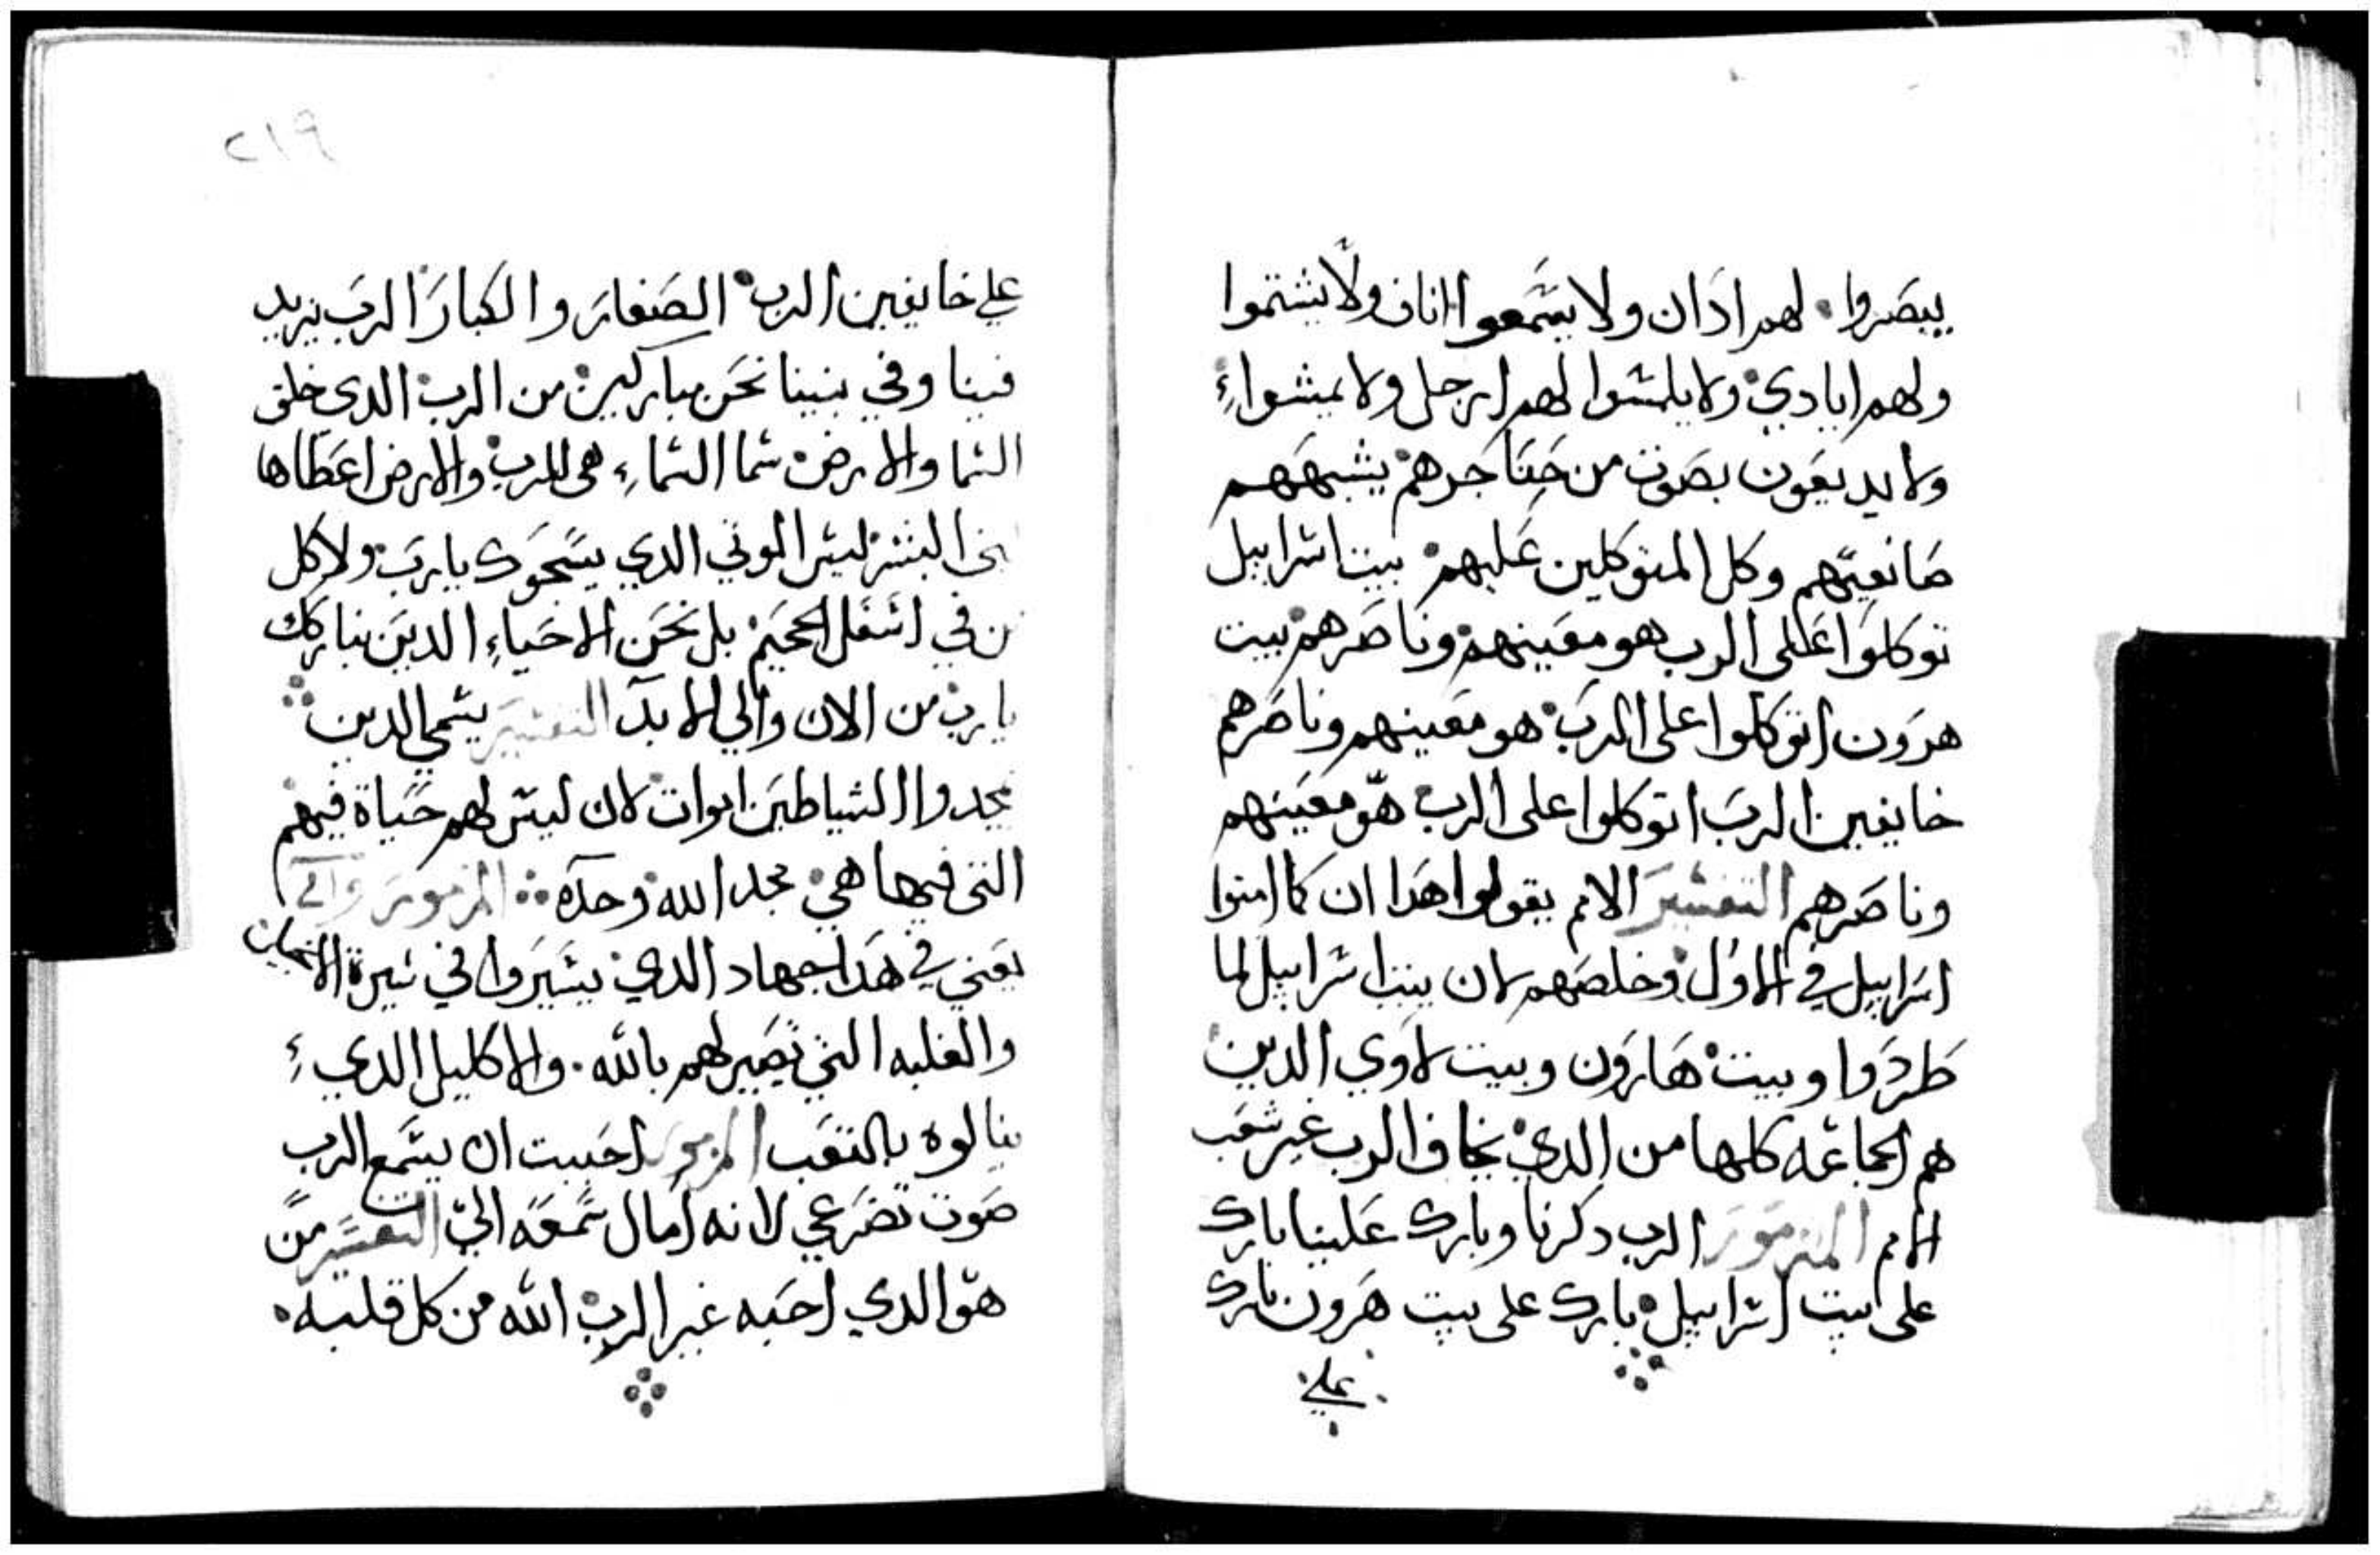 يبصروا. لهم ادان ولا يسمعوا اناف ولا يشتموا
ولهم ايادي ولا يلمسوا لهم ارجل ولا يمشوا
ولا يديعون بصوت من حناجرهم يشبههم
صانعيتهم وكل المتوكلين عليهم بيت اسراييل
توكلوا علي الرب هو معينهم وناصرهم بيت
هرون اتوكلوا على الرب هو معينهم وناصرهم
خايفين الرب اتوكلوا على الرب هو معينهم
وناصرهم التفسير الامم يقولوا هدا ان كما امنوا
اسراييل في الاول وخلصهم لان بيت اسراييل لما
طردوا وبيت هارون وبيت لاوي الدين
هم الجماعه كلها من الدي يخاف الرب غير شعب
الامم المزمور الرب دكرنا وبارك علينا بارك
على بيت اسراييل بارك على بيت هرون بارك
علي
٢١٩
علي خايفين الرب الصغار والكبار الرب يزيد
فينا وفي بنينا نحن مباركين من الرب الدي خلق
السما والارض سما السماء هي للرب والارض اعطاها
البشر ليس الموتي الدي يسبحوك يارب ولا كل
من في اسفل الجحيم بل نحن الاحياء الدين نباركك
يارب من الان والي الابد التفسير يسمي الدين
يمجدوا الشياطين اموات لان ليس لهم حياة فيهم
التي فيها هي مجد الله وحده المزمور
يعني في هدا جهاد الدي يسيروا في سيرة الانجيل
والغلبه التي تصير لهم بالله. والاكليل الدي
ينالوه بالتعب المزمور احببت ان يسمع الرب
صوت تضرعي لانه امال سمعه الي التفسير من
هو الدي احبه غير الرب الله من كل قلبه.